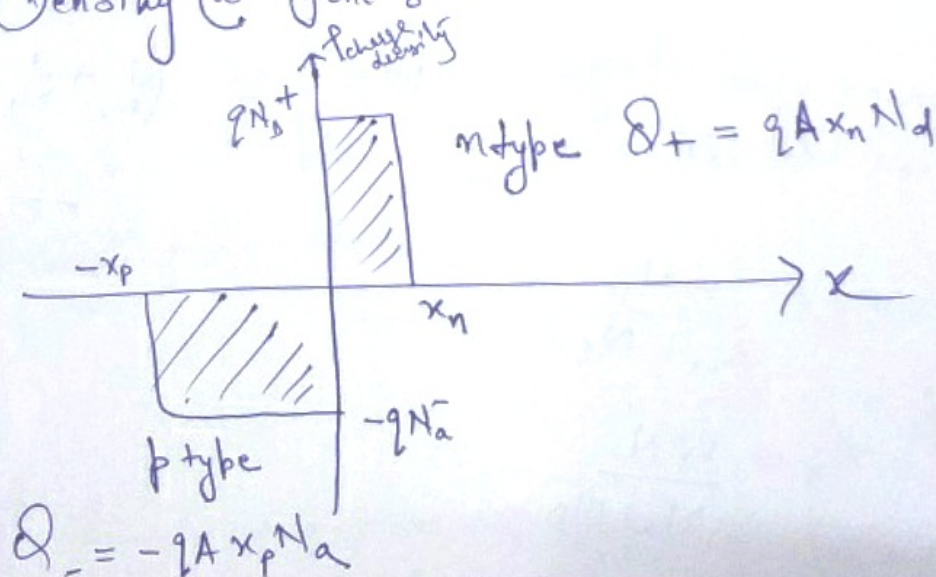 Density @
ρcharge density
qN_D^+
n type Q_+ = qA x_n N_d
-x_p
x_n
x
-qN_a^-
p type
Q_- = -qA x_p N_a